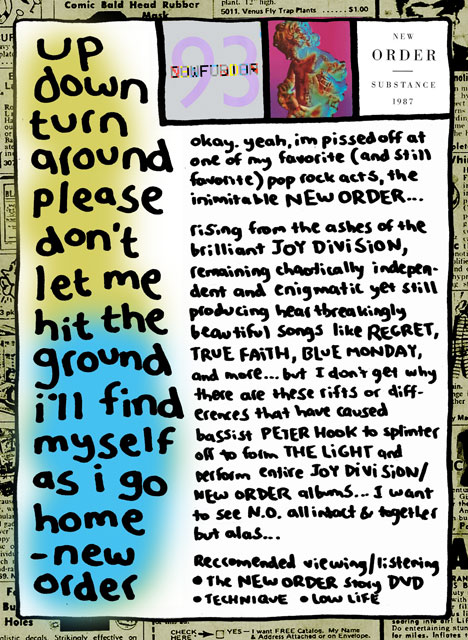 Comic Bald Head Rubber
Mask
plant. 12" high.
5011. Venus Fly Trap Plants
$1.00
up
down
turn
around
please
don't
let me
hit the
ground
i'll find
myself
as i go
home
-new
order
93
NEW
ORDER
SUBSTANCE
1987
okay. yeah, im pissed off at
one of my favorite (and still
favorite) pop rock acts, the
inimitable NEW ORDER...
rising from the ashes of the
brilliant JOY DIVISION,
remaining chaotically indepen-
dent and enigmatic yet still
producing heartbreakingly
beautiful songs like REGRET,
TRUE FAITH, BLUE MONDAY,
and more... but I don't get why
there are these rifts or diff-
erences that have caused
bassist PETER HOOK to splinter
off to form THE LIGHT and
perform entire JOY DIVISION/
NEW ORDER albums... I want
to see N.O. all intact & together
but alas...
Reccomended viewing/listening
• The NEW ORDER Story DVD
• TECHNIQUE • LOW LIFE
decals. Strikingly effective on
CHECK
HERE
YES — I want FREE Catalog. My Name
& Address Attached or on Envelope.